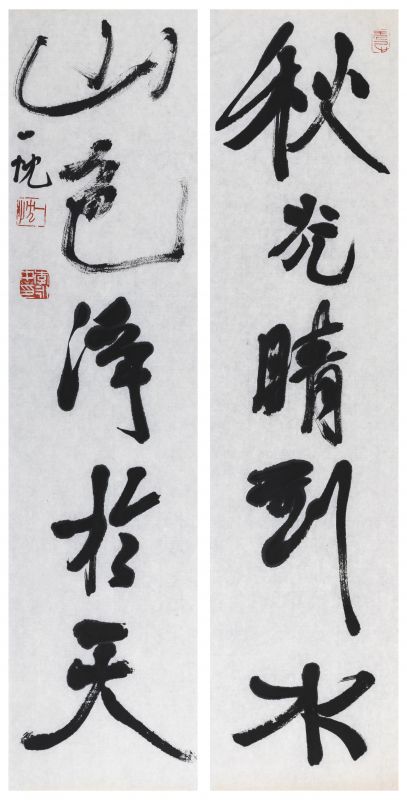 秋光晴到水
山色净於天
一忱